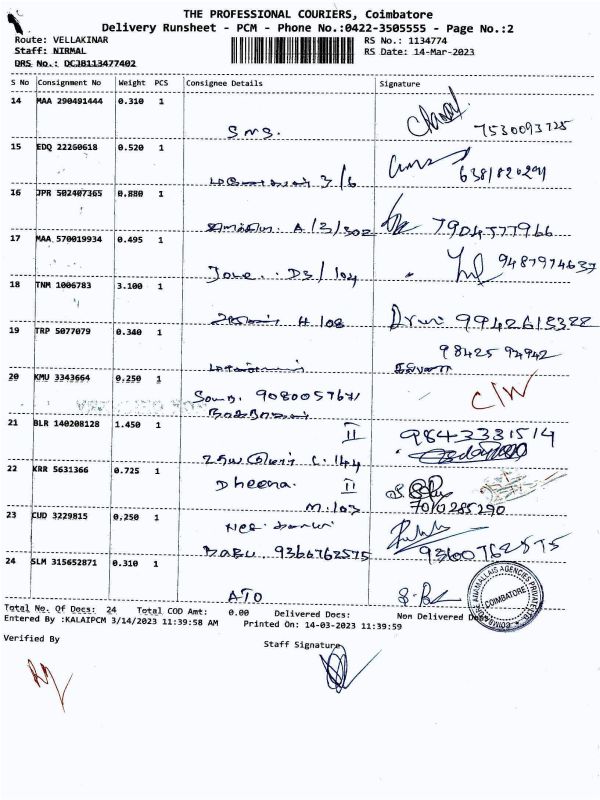 THE PROFESSIONAL COURIERS, Coimbatore
Delivery Runsheet - PCM - Phone No.:0422-3505555 - Page No.:2
Route: VELLAKINAR
RS No.: 1134774
Staff: NIRMAL
RS Date: 14-Mar-2023
DRS No.: DCJB113477402
S No Consignment No Weight PCS Consignee Details Signature
14 MAA 290491444 0.310 1
SMS. 7530093725
15 EDQ 22260618 0.520 1
3/6 6381820291
16 JPR 502407365 0.880 1
A/3/302 7904577966
17 MAA 570019934 0.495 1
D3/104 9487974637
18 TNM 1006783 3.100 1
H/08 9942615322
19 TRP 5077079 0.340 1
98425 94942
20 KMU 3343664 0.250 1
9080057671 C/W
21 BLR 140208128 1.450 1
II 9843331514
C. 144
22 KRR 5631366 0.725 1
Dheena. II
M. 103 7010285290
23 CUD 3229815 0.250 1
BABU 9360762575 9360762575
24 SLM 315652871 0.310 1
ATO
COIMBATORE ANAMALLAIS AGENCIES PRIVATE LTD.
COIMBATORE
Total No. Of Docs: 24 Total COD Amt: 0.00 Delivered Docs: Non Delivered Docs:
Entered By :KALAIPCM 3/14/2023 11:39:58 AM Printed On: 14-03-2023 11:39:59
Verified By Staff Signature